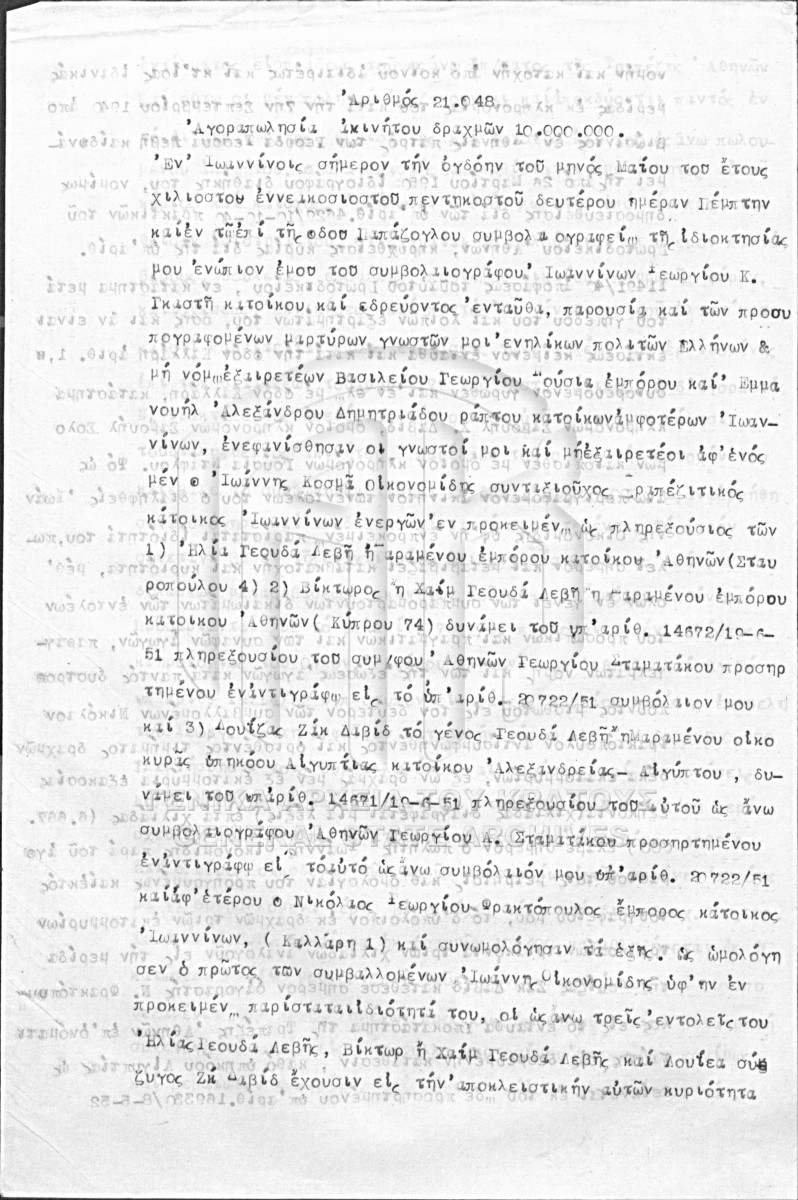 Ἀριθμός 21.048
Ἀγοραπωλησία ἀκινήτου δραχμῶν 10.000.000.
Ἐν Ἰωαννίνοις σήμερον τήν ὀγδόην τοῦ μηνός Μαΐου τοῦ ἔτους
χιλιοστοῦ ἐννεακοσιοστοῦ πεντηκοστοῦ δευτέρου ἡμέραν Πέμπτην
καί ἐν τῷ ἐπί τῆς ὁδοῦ Παπάζογλου συμβολαιογραφείῳ τῆς ἰδιοκτησίας
μου ἐνώπιον ἐμοῦ τοῦ συμβολαιογράφου Ἰωαννίνων Γεωργίου Κ.
Γκαστῆ κατοίκου καί ἑδρεύοντος ἐνταῦθα, παρουσίᾳ καί τῶν προσυ
πογραφομένων μαρτύρων γνωστῶν μοι ἐνηλίκων πολιτῶν Ἑλλήνων &
μή νόμῳ ἐξαιρετέων Βασιλείου Γεωργίου ούσια ἐμπόρου καί Ἐμμα
νουήλ Ἀλεξάνδρου Δημητριάδου ράπτου κατοίκων ἀμφοτέρων Ἰωαν-
νίνων, ἐνεφανίσθησαν οἱ γνωστοί μοι καί μή ἐξαιρετέοι ἀφ' ἑνός
μέν ὁ Ἰωάννης Κοσμᾶ Οἰκονομίδης συνταξιοῦχος τραπεζιτικός
κάτοικος Ἰωαννίνων ἐνεργῶν ἐν προκειμένῳ ὡς πληρεξούσιος τῶν
1) Ἠλία Γεουδά Λεβῆ ἤ Μαραμένου ἐμπόρου κατοίκου Ἀθηνῶν (Σταυ
ροπούλου 4) 2) Βίκτωρος ἤ Χαΐμ Γεουδά Λεβῆ ἤ Μαραμένου ἐμπόρου
κατοίκου Ἀθηνῶν ( Κύπρου 74) δυνάμει τοῦ ὑπ' ἀριθ. 14672/19-6-
51 πληρεξουσίου τοῦ συμ/φου Ἀθηνῶν Γεωργίου Σταματάκου προσηρ
τημένου ἐν ἀντιγράφῳ εἰς τό ὑπ' ἀριθ. 20722/51 συμβόλαιον μου
καί 3) Λουΐζας Ζάκ Δαβίδ τό γένος Γεουδά Λεβῆ ἤ Μαραμένου οἰκο
κυρᾶς ὑπηκόου Αἰγυπτίας κατοίκου Ἀλεξανδρείας- Αἰγύπτου , δυ-
νάμει τοῦ ὑπ' ἀριθ. 14671/19-6-51 πληρεξουσίου τοῦ αὐτοῦ ὡς ἄνω
συμβολαιογράφου Ἀθηνῶν Γεωργίου Α. Σταματάκου προσηρτημένου
ἐν ἀντιγράφῳ εἰς τό αὐτό ὡς ἄνω συμβόλαιόν μου ὑπ' ἀριθ. 20722/51
καί ἀφ' ἑτέρου ὁ Νικόλαος Γεωργίου Φρακτόπουλος ἔμπορος κάτοικος
Ἰωαννίνων, ( Καλλάρη 1) καί συνωμολόγησαν τά ἑξῆς. ὡς ὡμολόγη
σεν ὁ πρῶτος τῶν συμβαλλομένων Ἰωάννης Οἰκονομίδης ὑφ' ἥν ἐν
προκειμένῳ παρίσταται ἰδιότητά του, οἱ ὡς ἄνω τρεῖς ἐντολεῖς του
Ἠλίας Γεουδά Λεβῆς, Βίκτωρ ἤ Χαΐμ Γεουδά Λεβῆς καί Λουΐζα σύ
ζυγος Ζάκ Δαβίδ ἔχουσιν εἰς τήν ἀποκλειστικήν αὐτῶν κυριότητα
ΓΕΝΙΚΑ ΑΡΧΕΙΑ ΤΟΥ ΚΡΑΤΟΥΣ
GENERAL STATE ARCHIVES